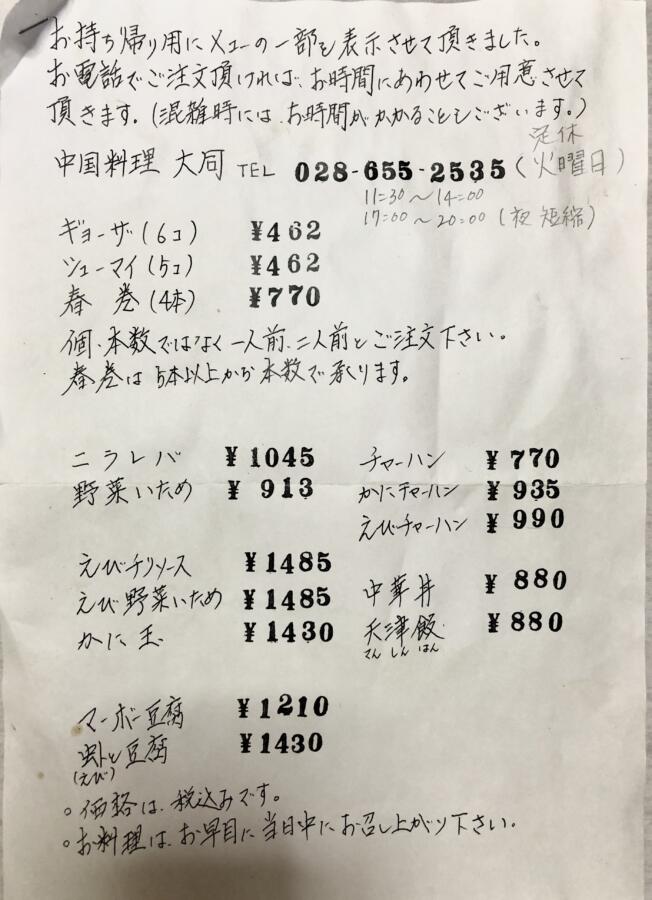 お持ち帰り用にメニューの一部を表示させて頂きました。
お電話でご注文頂ければ、お時間にあわせてご用意させて
頂きます。(混雑時には、お時間がかかることもございます。)
中国料理 大同 TEL 028-655-2535 (定休 火曜日)
11:30～14:00
17:00～20:00 (夜短縮)
ギョーザ(6コ) ¥462
シューマイ(5コ) ¥462
春巻(4本) ¥770
個、本数ではなく一人前、二人前とご注文下さい。
春巻は5本以上から本数で承ります。
ニラレバ ¥1045
野菜いため ¥913
えびチリソース ¥1485
えび野菜いため ¥1485
かに玉 ¥1430
マーボー豆腐 ¥1210
虾と豆腐 ¥1430
(えび)
チャーハン ¥770
かにチャーハン ¥935
えびチャーハン ¥990
中華丼 ¥880
天津飯 ¥880
てんしんはん
○価格は、税込みです。
○お料理は、お早目に当日中にお召し上がり下さい。